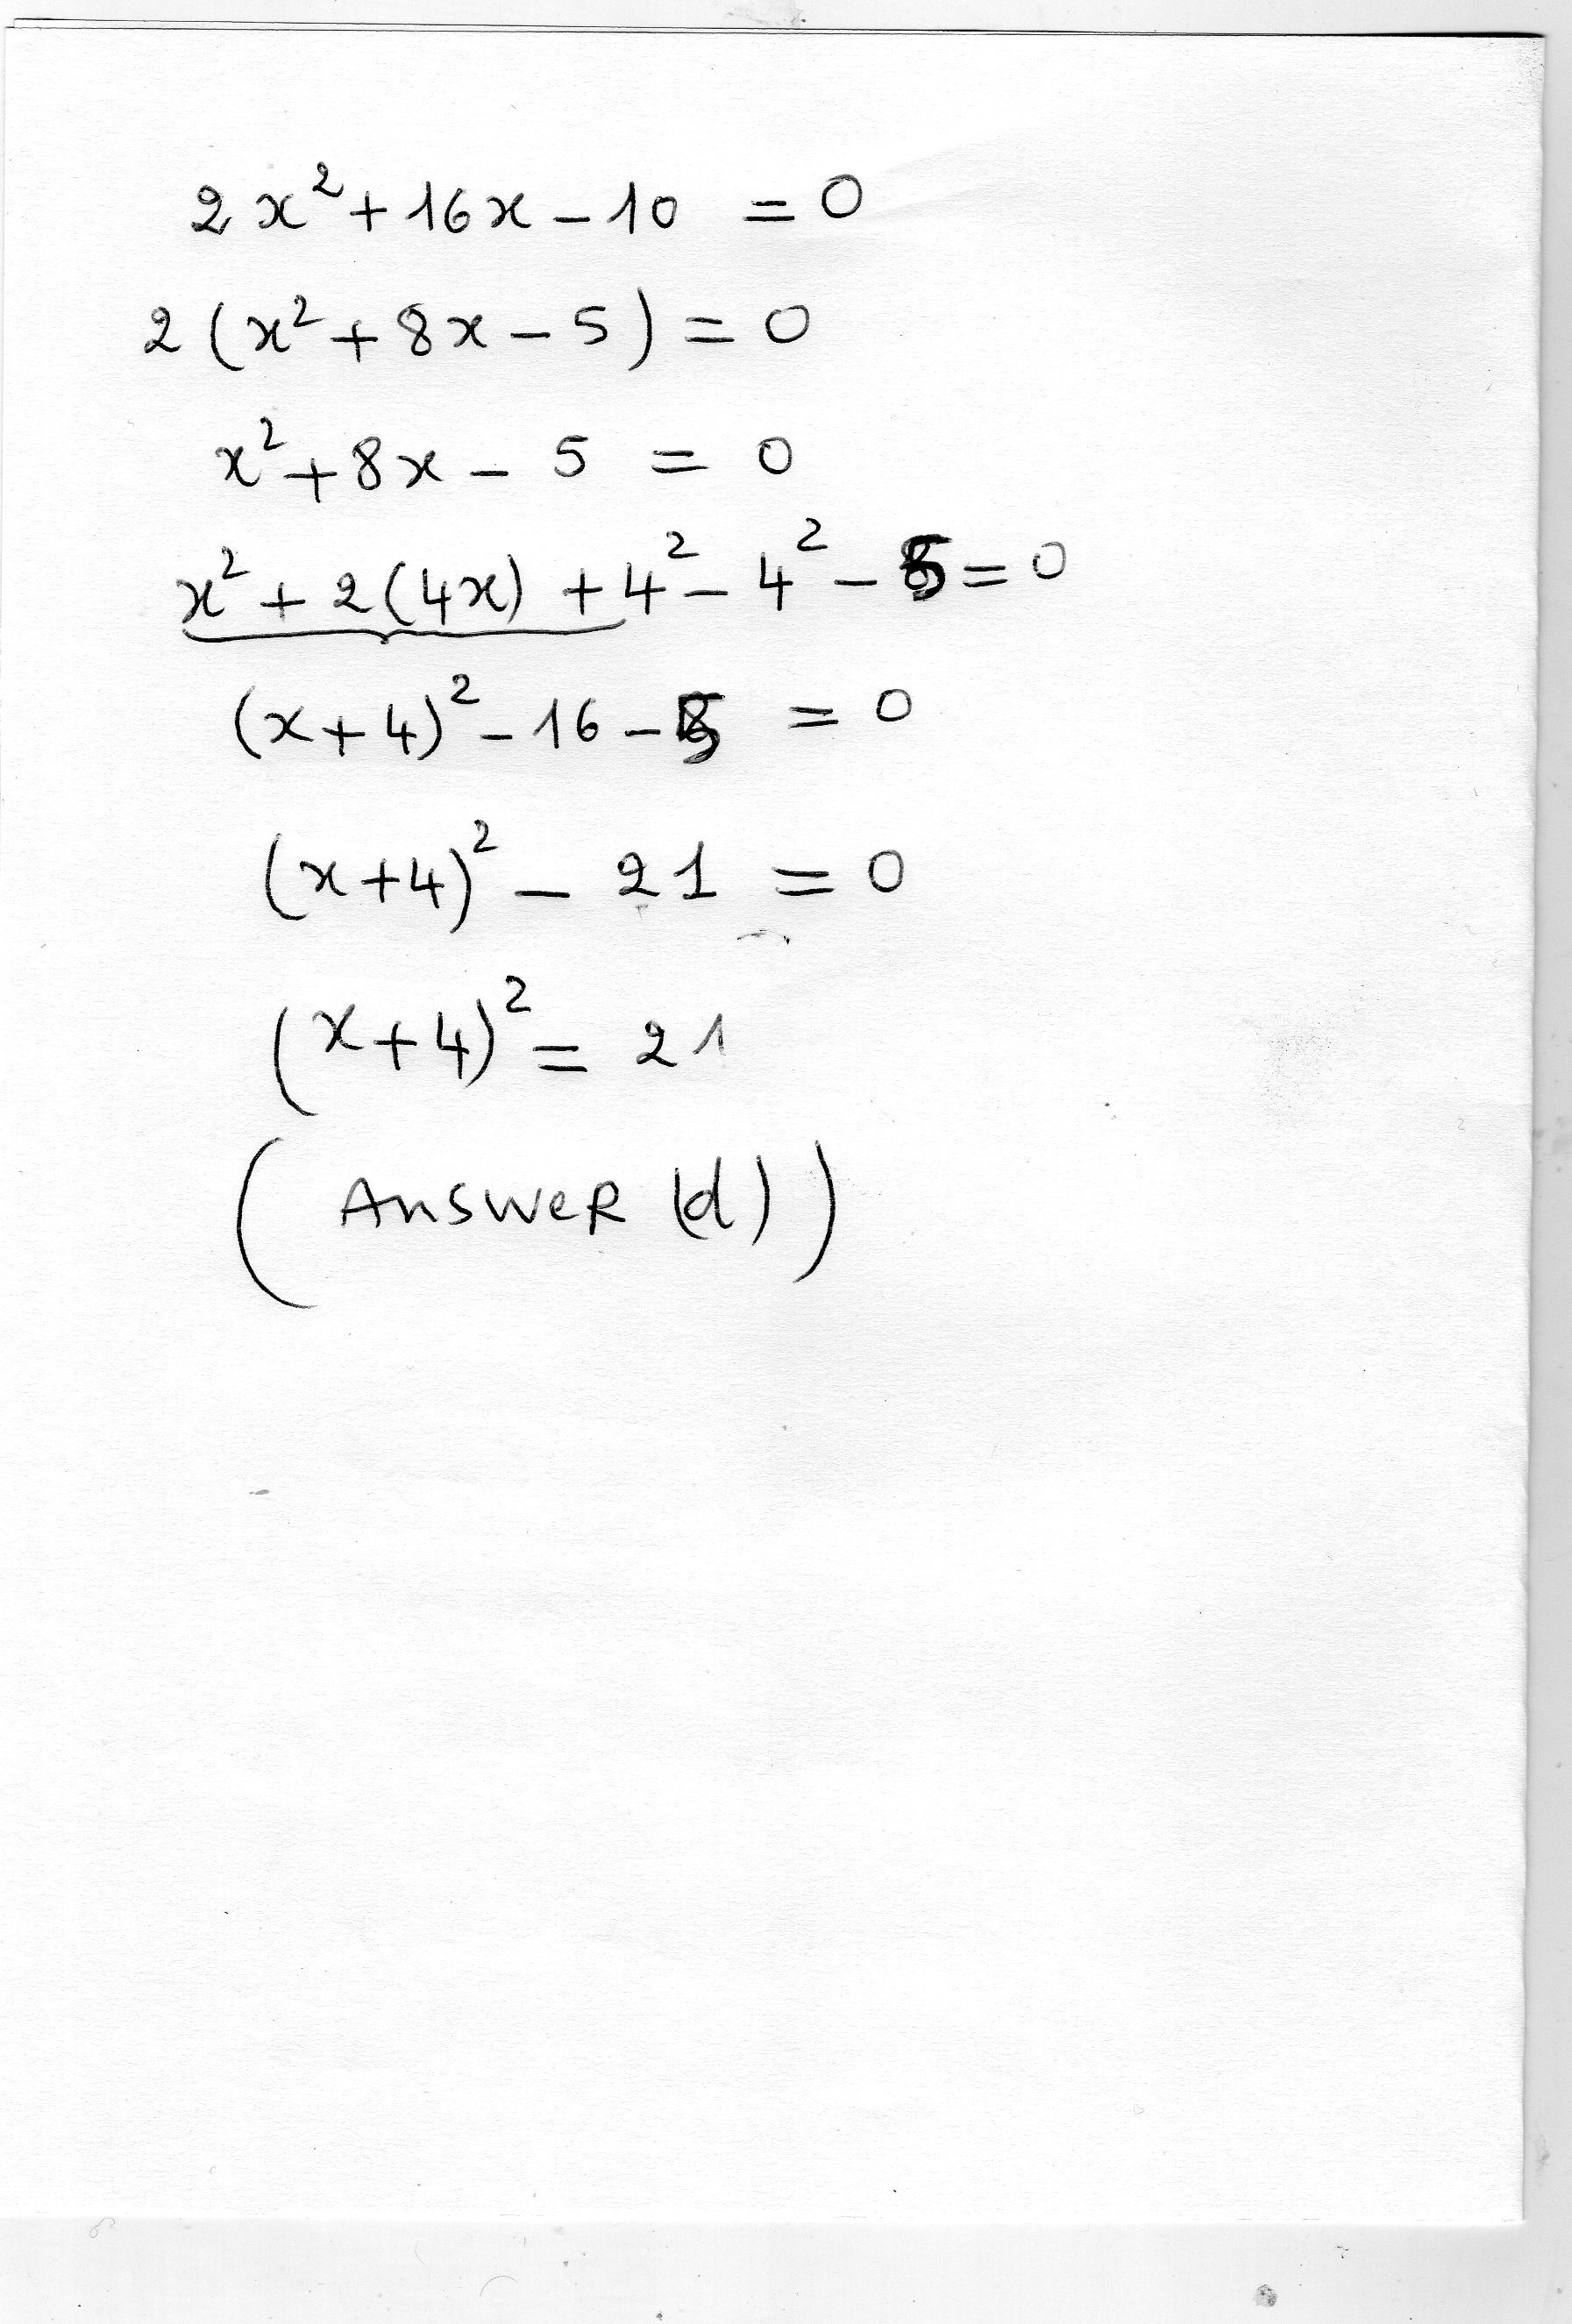 2x² + 16x - 10 = 0
2(x² + 8x - 5) = 0
x² + 8x - 5 = 0
x² + 2(4x) + 4² - 4² - 5 = 0
(x+4)² - 16 - 5 = 0
(x+4)² - 21 = 0
(x+4)² = 21
(Answer (d))